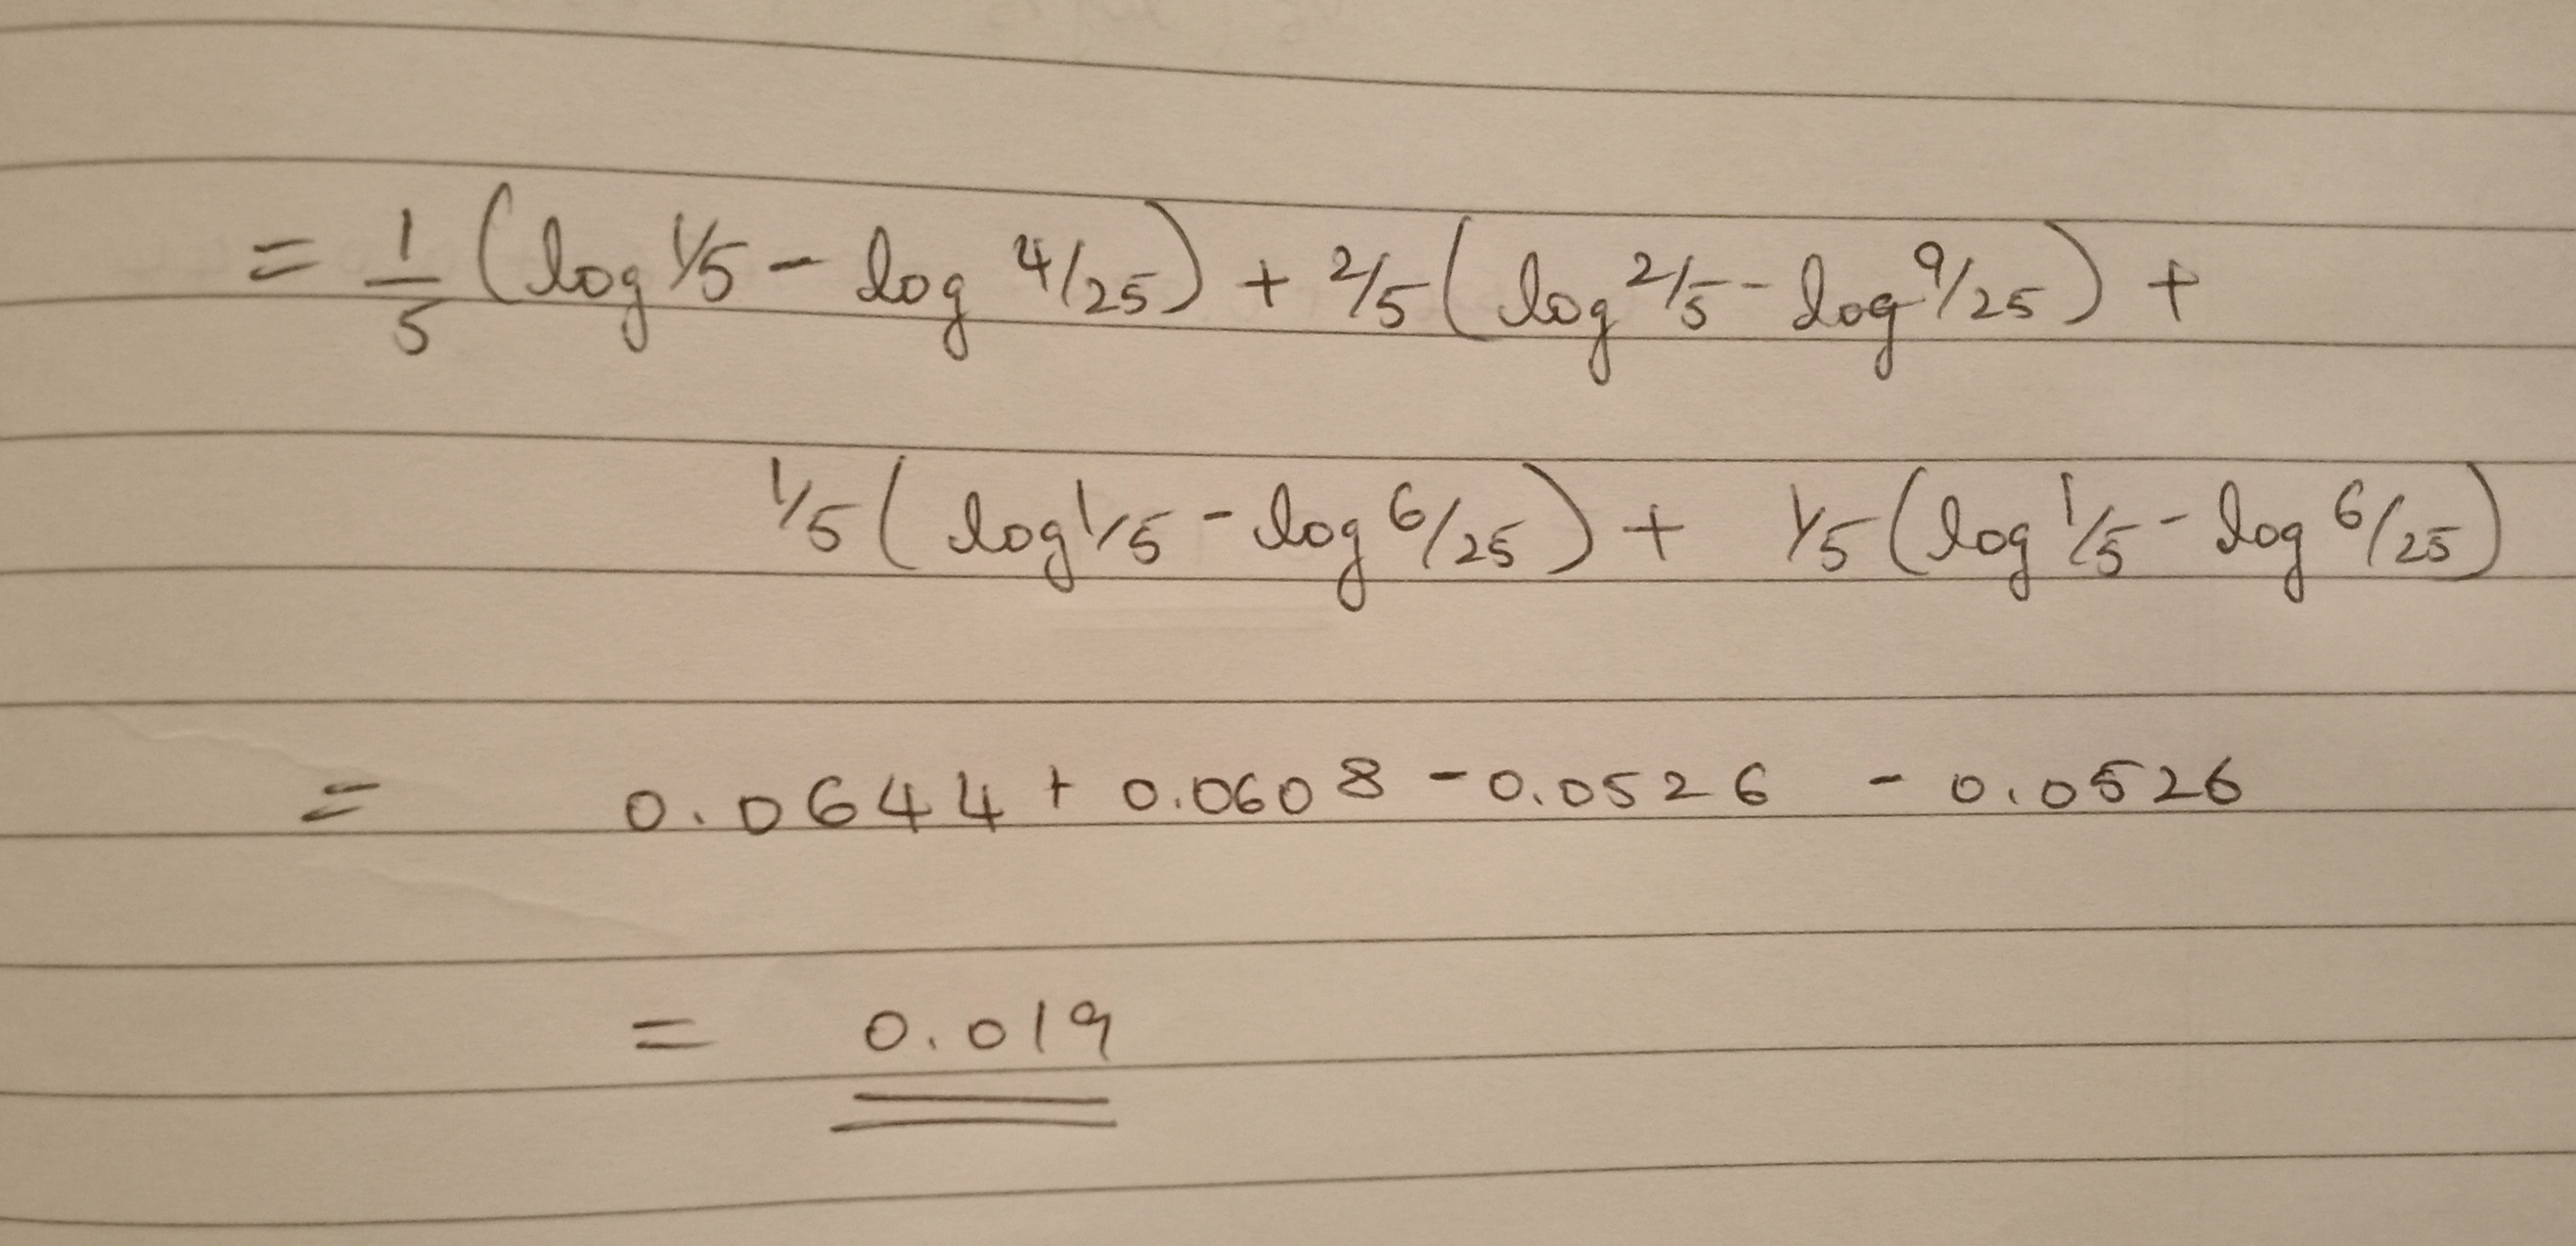 = 1/5 (log 1/5 - log 4/25) + 2/5 (log 2/5 - log 9/25) +
1/5 (log 1/5 - log 6/25) + 1/5 (log 1/5 - log 6/25)
= 0.0644 + 0.0608 - 0.0526 - 0.0526
= 0.019